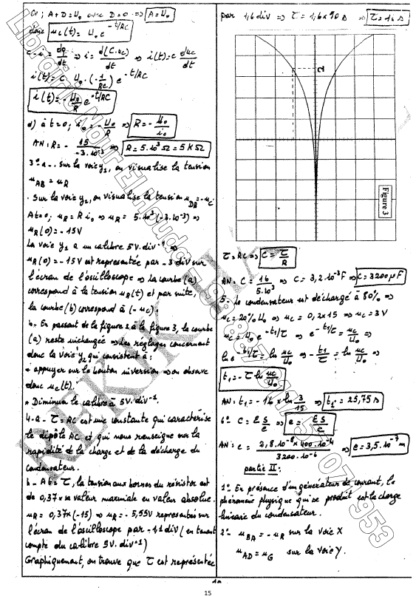 Or ; A+D=U₀ avec D=0 => A=U₀
donc u_c(t) = U₀ e^(-t/RC)
i = dq/dt => i = d(C.u_c)/dt => i(t) = C du_c/dt
i(t) = C U₀ . (-1/RC) e^(-t/RC)
i(t) = - U₀/R e^(-t/RC)
d) à t=0 ; i₀ = - U₀/R => R = - U₀/i₀
AN : R = - 15/(-3.10⁻³) => R = 5.10³ Ω = 5 KΩ
3° a - . sur la voie y₁, on visualise la tension
u_AB = u_R
. Sur la voie y₂, on visualise la tension u_DB = -u_c
A t=0, u_R = R i₀ => u_R = 5.10³ (-3.10⁻³) =>
u_R(0) = -15V
La voie y₂ a un calibre 5V.div⁻¹ =>
u_R(0) = -15V est représentée par -3 div sur
l'écran de l'oscilloscope => La courbe (a)
correspond à la tension u_R(t) et par suite
la courbe (b) correspond à (-u_c)
4. En passant de la figure 2 à la figure 3, la courbe
(a) reste inchangée => les réglages concernent
donc la voie y₂ qui consistent à :
• appuyer sur le bouton inversion => on observe
donc u_c(t)
• Diminuer le calibre à 5V.div⁻¹.
4-a - τ = RC est une constante qui caractérise
le dipôle RC et qui nous renseigne sur la
rapidité de la charge et de la décharge du
condensateur.
b - A t = τ, la tension aux bornes du résistor est
de 0,37 x sa valeur maximale en valeur absolue
u_R = 0,37 x (-15) => u_R = -5,55V représentée sur
l'écran de l'oscilloscope par -1,1 div (en tenant
compte du calibre 5V.div⁻¹)
Graphiquement, on trouve que τ est représentée
par 1,6 div => τ = 1,6 x 10 s => τ = 16 s
Figure 3
τ = RC => C = τ/R
AN : C = 16/5.10³ => C = 3,2.10⁻³F => C = 3200 µF
5 - Le condensateur est déchargé à 80% =>
u_c = 20% U₀ => u_c = 0,2 x 15 => u_c = 3V
u_c = U₀ e^(-t₁/τ) => e^(-t₁/τ) = u_c/U₀ =>
ln e^(-t₁/τ) = ln u_c/U₀ => - t₁/τ = ln u_c/U₀ =>
t₁ = - τ ln u_c/U₀
AN : t₁ = -16 x ln 3/15 => t₁ = 25,75 s
6° - C = ε S/e => e = ε S/C
=> e = 3,5.10⁻⁹ m
partie II :
1° - En présence d'un générateur de courant, le
phénomène physique qui se produit est la charge
linéaire du condensateur.
2° - u_BA = - u_R sur la voie X
u_AD = u_G sur la voie Y.
15